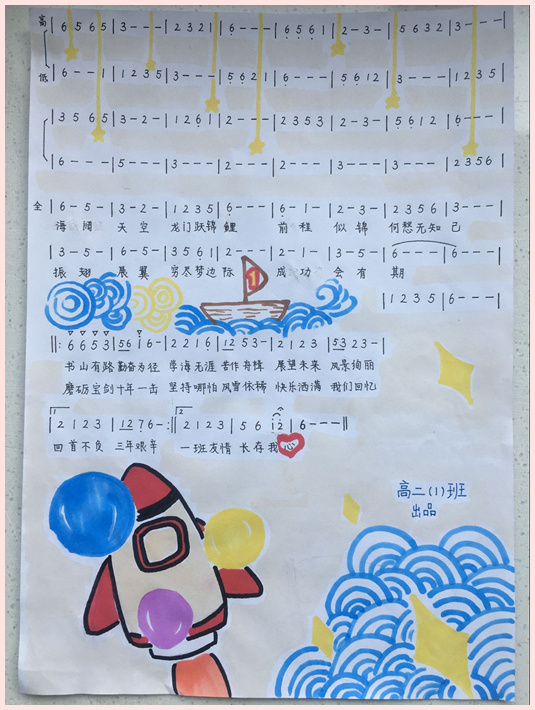 高 | 6 5 6 5 | 3 - - - | 2 3 2 1 | 6 - - - | 6 5 6 1 | 2 - 3 - | 5 6 5 3 | 3 - - - |
低 | 6 - - 1 | 1 2 3 5 | 3 - - - | 5 6 2 1 | 6 - - - | 5 6 1 2 | 3 - - - | 1 2 3 5 |
| 3 5 6 5 | 3 - 2 - | 1 2 6 1 | 2 - - - | 2 3 5 3 | 2 - 3 - | 5 6 1 2 | 6 - - - |
| 6 - - - | 5 - - - | 3 - - - | 2 - - - | 2 - - - | 3 - - - | 3 - - - | 2 3 5 6 |
全 | 6 - 5 - | 3 - 2 - | 1 2 3 5 | 6 - - - | 6 - 1 - | 2 - 3 - | 2 3 5 6 | 3 - - - |
海 阔 天 空 龙门跃锦 鲤 前 程 似 锦 何愁无知 己
| 3 - 5 - | 6 - 5 - | 3 5 6 1 | 2 - - - | 2 - 1 - | 3 - 5 - | 6 - - - | 6 - - - |
振 翅 展 翼 穷尽梦边 际 成 功 会 有 期
| 1 2 3 5 | 6 - - - |
1
||: 6 6 5 3 | 5 6 1 6 - | 2 2 1 6 | 1 2 5 3 - | 2 1 2 3 | 5 3 2 3 - |
书山有路 勤奋为径 学海无涯 苦作舟楫 展望未来 风景绚丽
磨砺宝剑 十年一击 坚持哪怕 风雪依稀 快乐洒满 我们回忆
1 | 2 1 2 3 | 1 2 7 6 - :|| 2 2 1 2 3 | 5 6 i 2 | 6 - - - ||
回首不负 三年艰辛 一班友情 长存我心
高二(1)班
出品